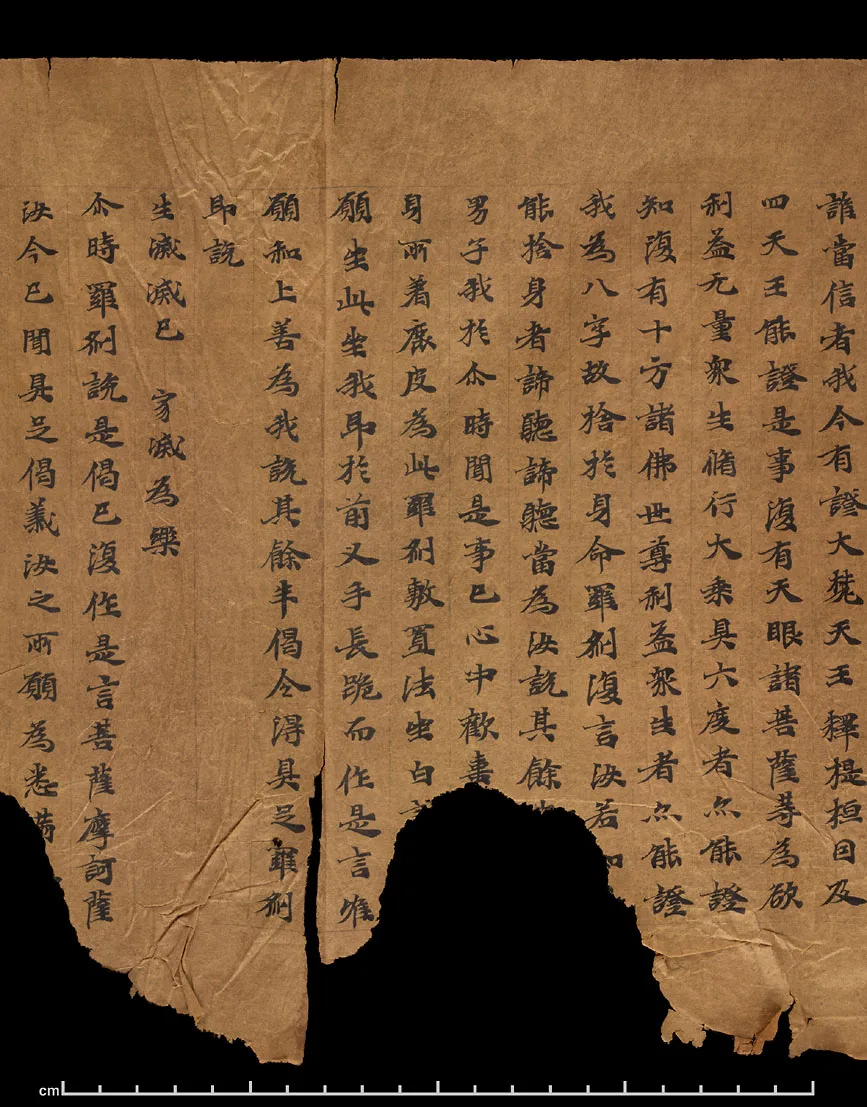 誰當信者我今有證大梵天王釋提桓因及
四天王能證是事復有天眼諸菩薩等為欲
利益无量眾生脩行大乘具六度者亦能證
知復有十方諸佛世尊利益眾生者亦能證
我為八字故捨於身命羅剎復言汝若如
能捨身者諦聽諦聽當為汝說其餘
男子我於尒時聞是事已心中歡喜
身所著鹿皮為此羅剎敷置法坐白
願坐此坐我即於前叉手長跪而作是言唯
願和上善為我說其餘半偈令得具足羅剎
即說
生滅滅已 寂滅為樂
尒時羅剎說是偈已復作是言菩薩摩訶薩
汝今已聞具足偈義汝之所願為悉滿